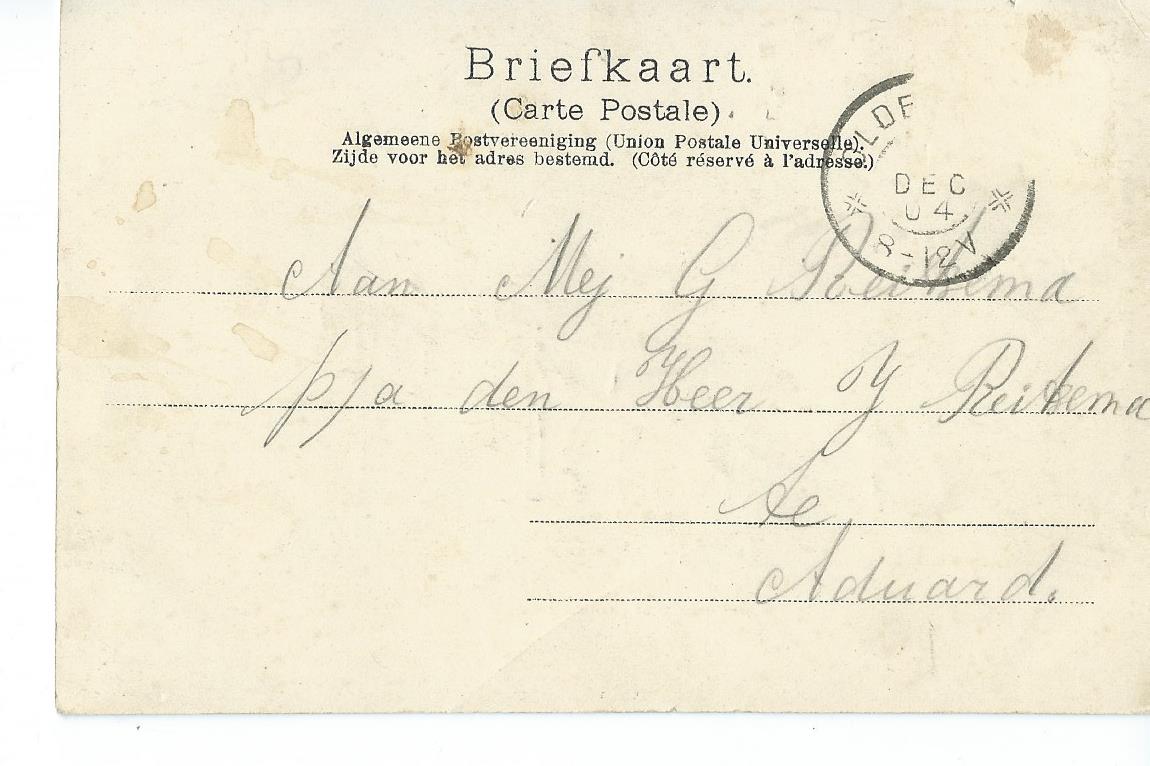 Briefkaart.
(Carte Postale).
Algemeene Postvereeniging (Union Postale Universelle).
Zijde voor het adres bestemd. (Côté réservé à l'adresse.)
DEC
04
8-12V
Aan Mej G Reitsema
p/a den Heer J Reitsema
te
Aduard.